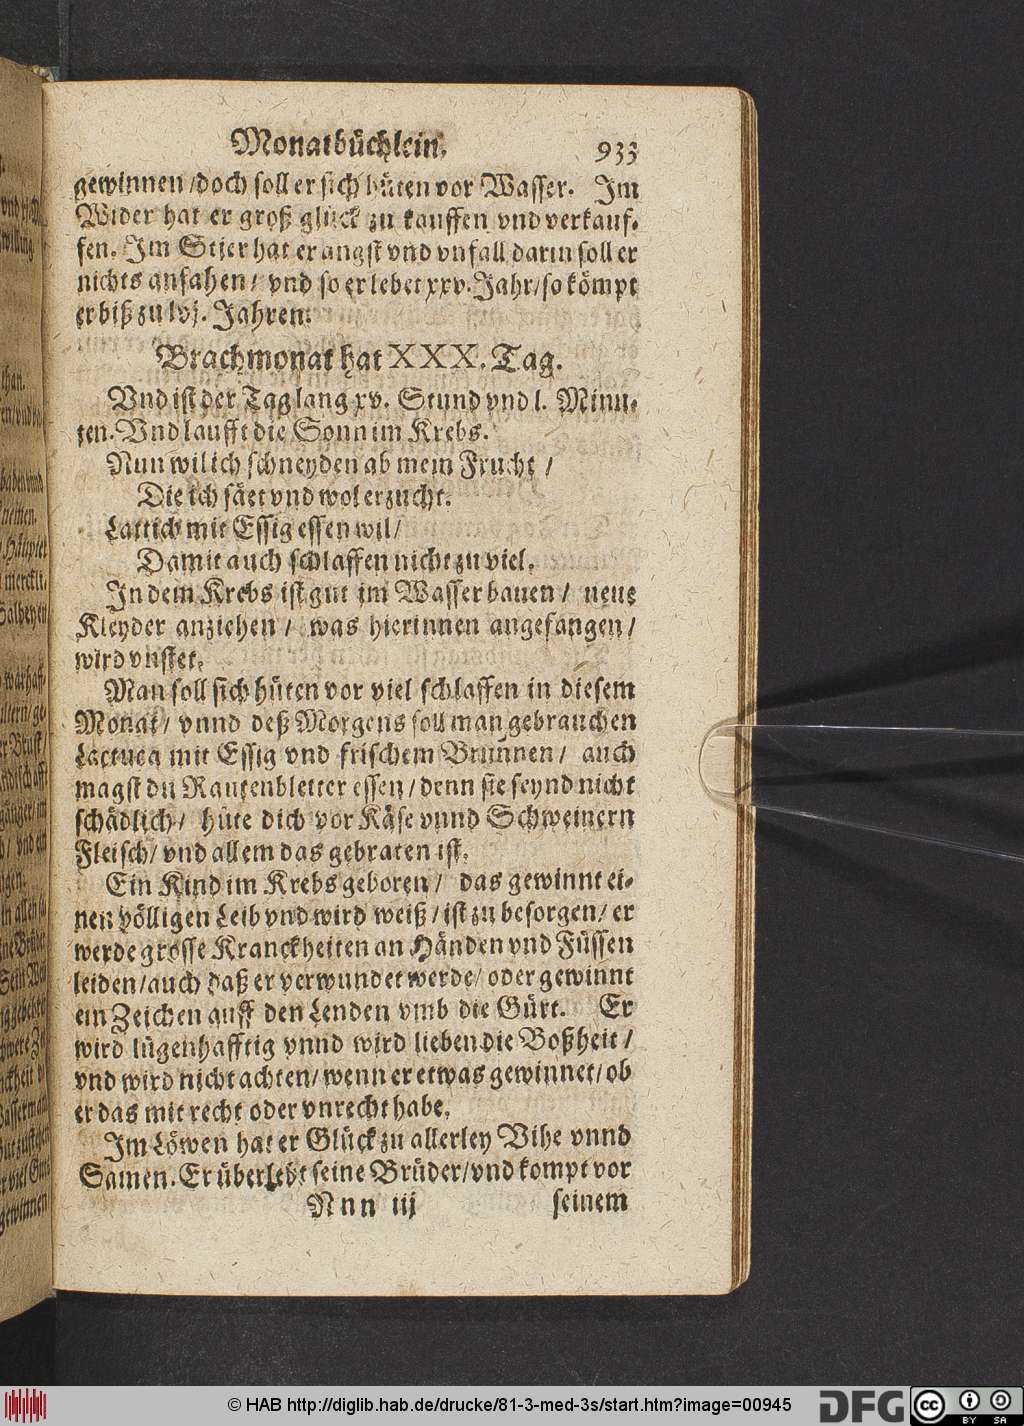 Monatbüchlein. 933
gewinnen / doch soll er sich hüten vor Wasser. Im
Wider hat er groß glück zu kauffen vnd verkauf-
fen. Im Stier hat er angst vnd vnfall darin soll er
nichts anfahen / vnd so er lebet xxv. Jahr / so kömpt
er biß zu lvj. Jahren.
Brachmonat hat XXX. Tag.
Vnd ist der Tag lang xv. Stund vnd l. Minu-
ten. Vnd laufft die Sonn im Krebs.
Nun wil ich schneyden ab mein Frucht /
Die ich säet vnd wol erzucht.
Lattich mit Essig essen wil /
Damit auch schlaffen nicht zu viel.
In dem Krebs ist gut im Wasser bauen / neue
Kleyder anziehen / was hierinnen angefangen /
wird vnstet.
Man soll sich hüten vor viel schlaffen in diesem
Monat / vnnd deß Morgens soll man gebrauchen
Lactuca mit Essig vnd frischem Brunnen / auch
magst du Rautenbletter essen / denn sie seynd nicht
schädlich / hüte dich vor Käse vnnd Schweinern
Fleisch / vnd allem das gebraten ist.
Ein Kind im Krebs geboren / das gewinnt ei-
nen völligen Leib vnd wird weiß / ist zu besorgen / er
werde grosse Kranckheiten an Händen vnd Füssen
leiden / auch daß er verwundet werde / oder gewinnt
ein Zeichen auff den Lenden vmb die Gürt. Er
wird lügenhafftig vnnd wird lieben die Boßheit /
vnd wird nicht achten / wenn er etwas gewinnet / ob
er das mit recht oder vnrecht habe.
Im Löwen hat er Glück zu allerley Vihe vnnd
Samen. Er überlebt seine Brüder / vnd kompt vor
Nnn iij seinem
© HAB http://diglib.hab.de/drucke/81-3-med-3s/start.htm?image=00945
DFG
cc BY SA